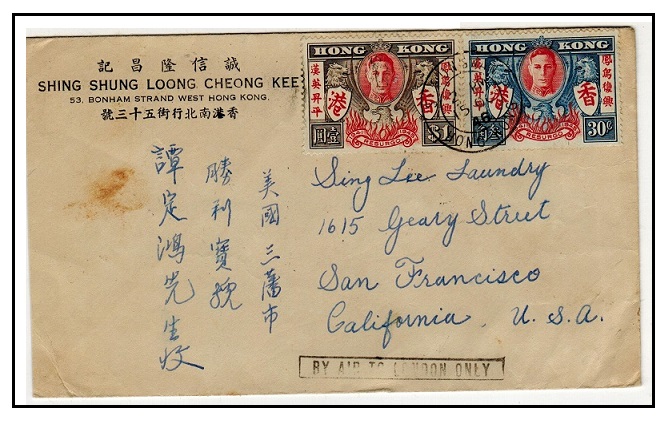 記昌隆信誠
SHING SHUNG LOONG CHEONG KEE
53, BONHAM STRAND WEST HONG KONG.
號三十五街行北南港香
HONG KONG
漢英昇平
鳳鳥復興
香港
1941 RESURGO 1945
壹圓
$1
HONG KONG
漢英昇平
鳳鳥復興
香港
RESURGO
30¢
美國三藩市
勝利寶號
譚定鴻先生收
Sing Lee Laundry
1615 Geary Street
San Francisco
California, U.S.A.
BY AIR TO LONDON ONLY